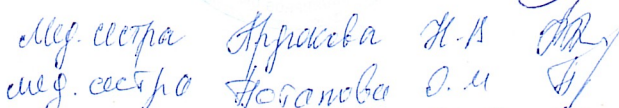 Мед. сестра Н.В
мед. сестра Потапова О.М